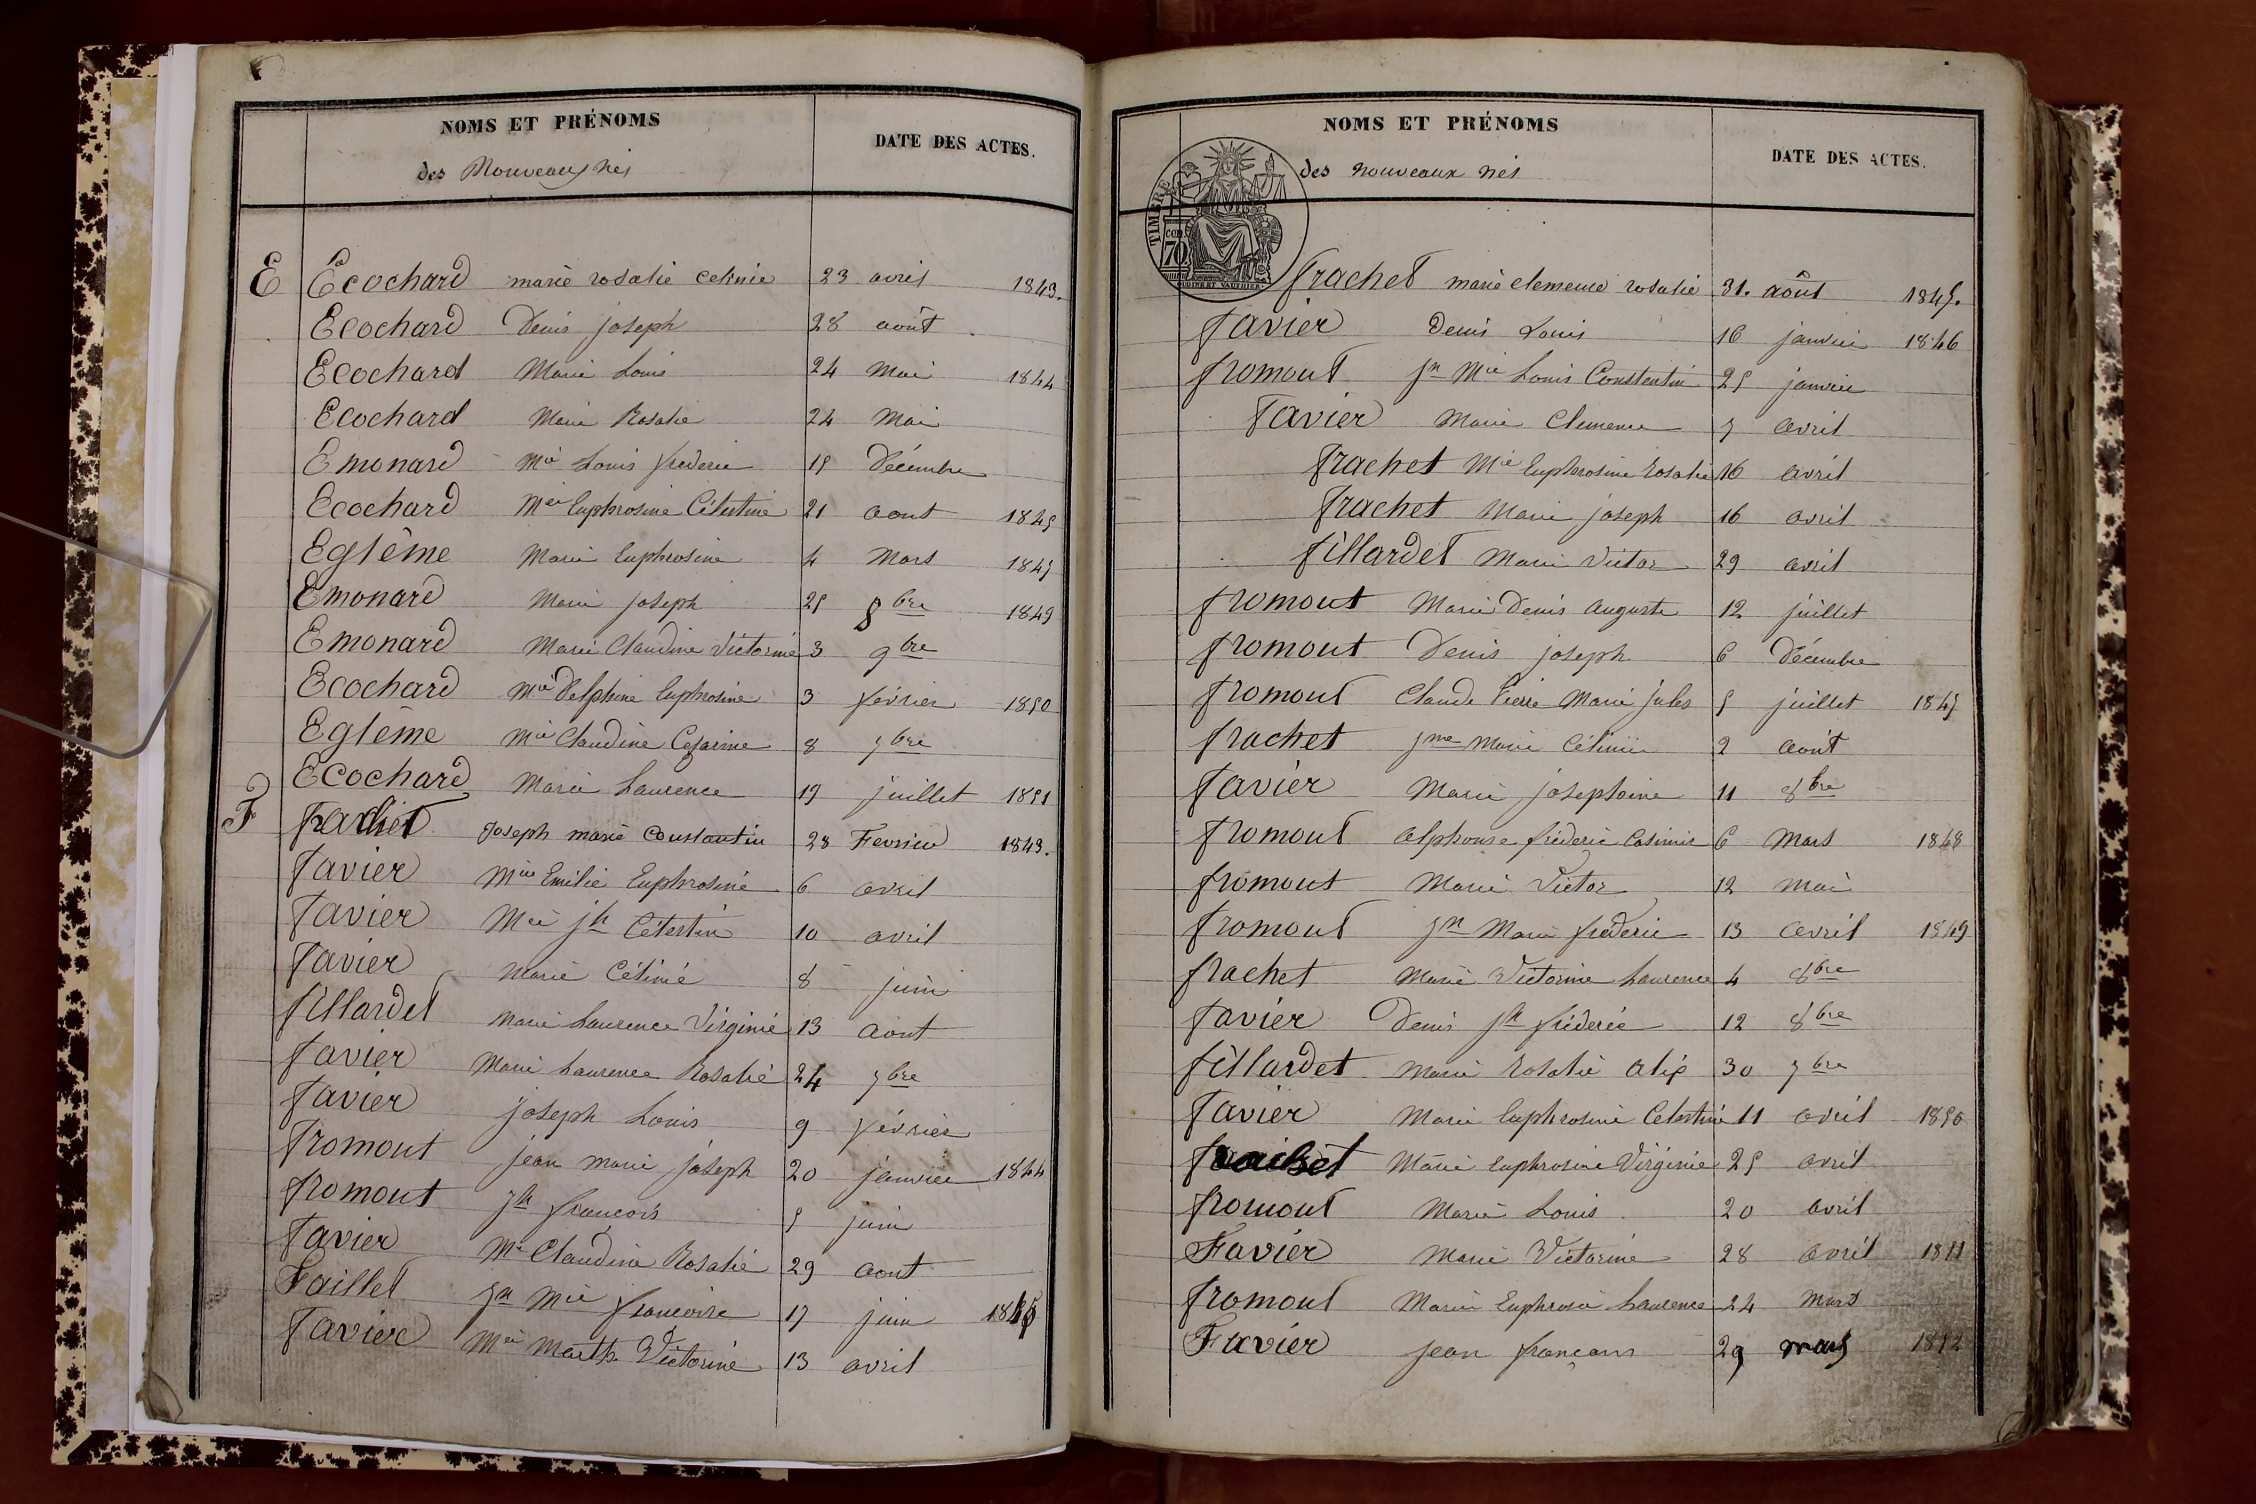 NOMS ET PRÉNOMS
DATE DES ACTES.
des Nouveaux nés
E Ecochard marie rosalie celinie 23 avril 1843.
Ecochard Denis joseph 28 août
Ecochard Marie Louis 24 Mai 1844
Ecochard Marie Rosalie 24 Mai
Emonard Mie Louis frederic 15 Décembre
Ecochard Mie Euphrosine Célestine 21 aout 1845
Eglême Marie Euphrosine 4 Mars 1847
Emonard Marie joseph 25 8bre 1849
Emonard Marie Claudine Victorine 3 9bre
Ecochard Mie Delphine Euphrosine 3 février 1850
Eglême Mie Claudine Cezarine 8 7bre
Ecochard Marie Laurence 19 juillet 1851
F Frachet Joseph marie Constantin 28 Fevrier 1843.
Favier Mie Emilie Euphrosine 6 avril
Favier Mie jh Célestin 10 avril
Favier Marie Célinie 8 juin
fillardet Marie Laurence Virginie 13 aout
Favier Marie Laurence Rosalie 24 7bre
Favier joseph Louis 9 février
fromont jean marie joseph 20 janvier 1844
fromont jh françois 5 juin
Favier Mie Claudine Rosalie 29 aout
Faillet jn Mie francoise 17 juin 1845
Favier Mie Marth. Victorine 13 avril
NOMS ET PRÉNOMS
DATE DES ACTES.
des nouveaux nés
TIMBRE
70
frachet marie clemence rosalie 31. août 1845.
Favier Denis Louis 16 janvier 1846
fromont jn Mie Louis Constentin 25 janvier
Favier Marie Clemence 7 avril
frachet Mie Euphrosine Rosalie 16 avril
frachet Marie joseph 16 avril
fillardet Marie Victor 29 avril
fromont Marie Denis auguste 12 juillet
fromont Denis joseph 6 Décembre
fromont Claude Pierre Marie jules 5 juillet 1847
frachet jne Marie Célinie 2 août
Favier Marie joséphine 11 8bre
fromont alphonse frederic Casimir 6 Mars 1848
fromont Marie Victor 12 mai
fromont jn Marie frederic 13 avril 1849
frachet Marie Victorine Laurence 4 8bre
Favier Denis jh fréderic 12 8bre
fillardet Marie Rosalie alix 30 7bre
Favier Marie Euphrosine Celestine 11 avril 1850
Marie Euphrosine Virginie 25 avril
fromont Marie Louis 20 avril
Favier Marie Victorine 28 avril 1851
fromont Marie Euphrosie Laurence 24 Mars
Favier jean françois 29 mars 1852